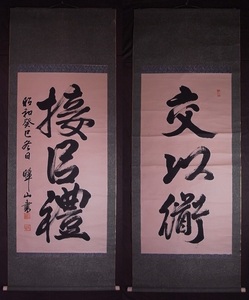 交以衜
接㠯禮
昭和癸巳冬日 山書